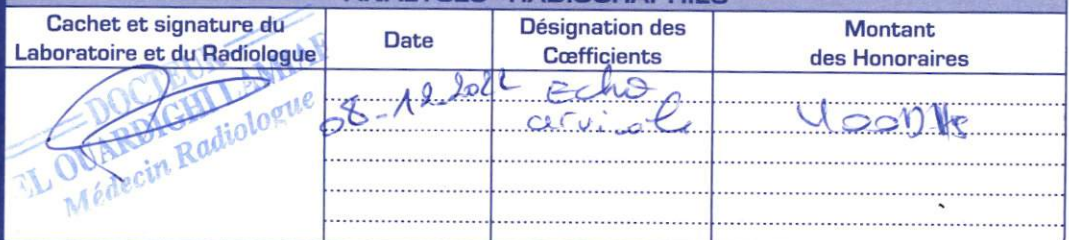 ANALYSES - RADIOGRAPHIES
Cachet et signature du
Laboratoire et du Radiologue
Date
Désignation des
Cœfficients
Montant
des Honoraires
DOCTEUR
EL OUARDIGHI LAMIAE
Médecin Radiologue
08-12-2022
Echo
cervicale
400DHs